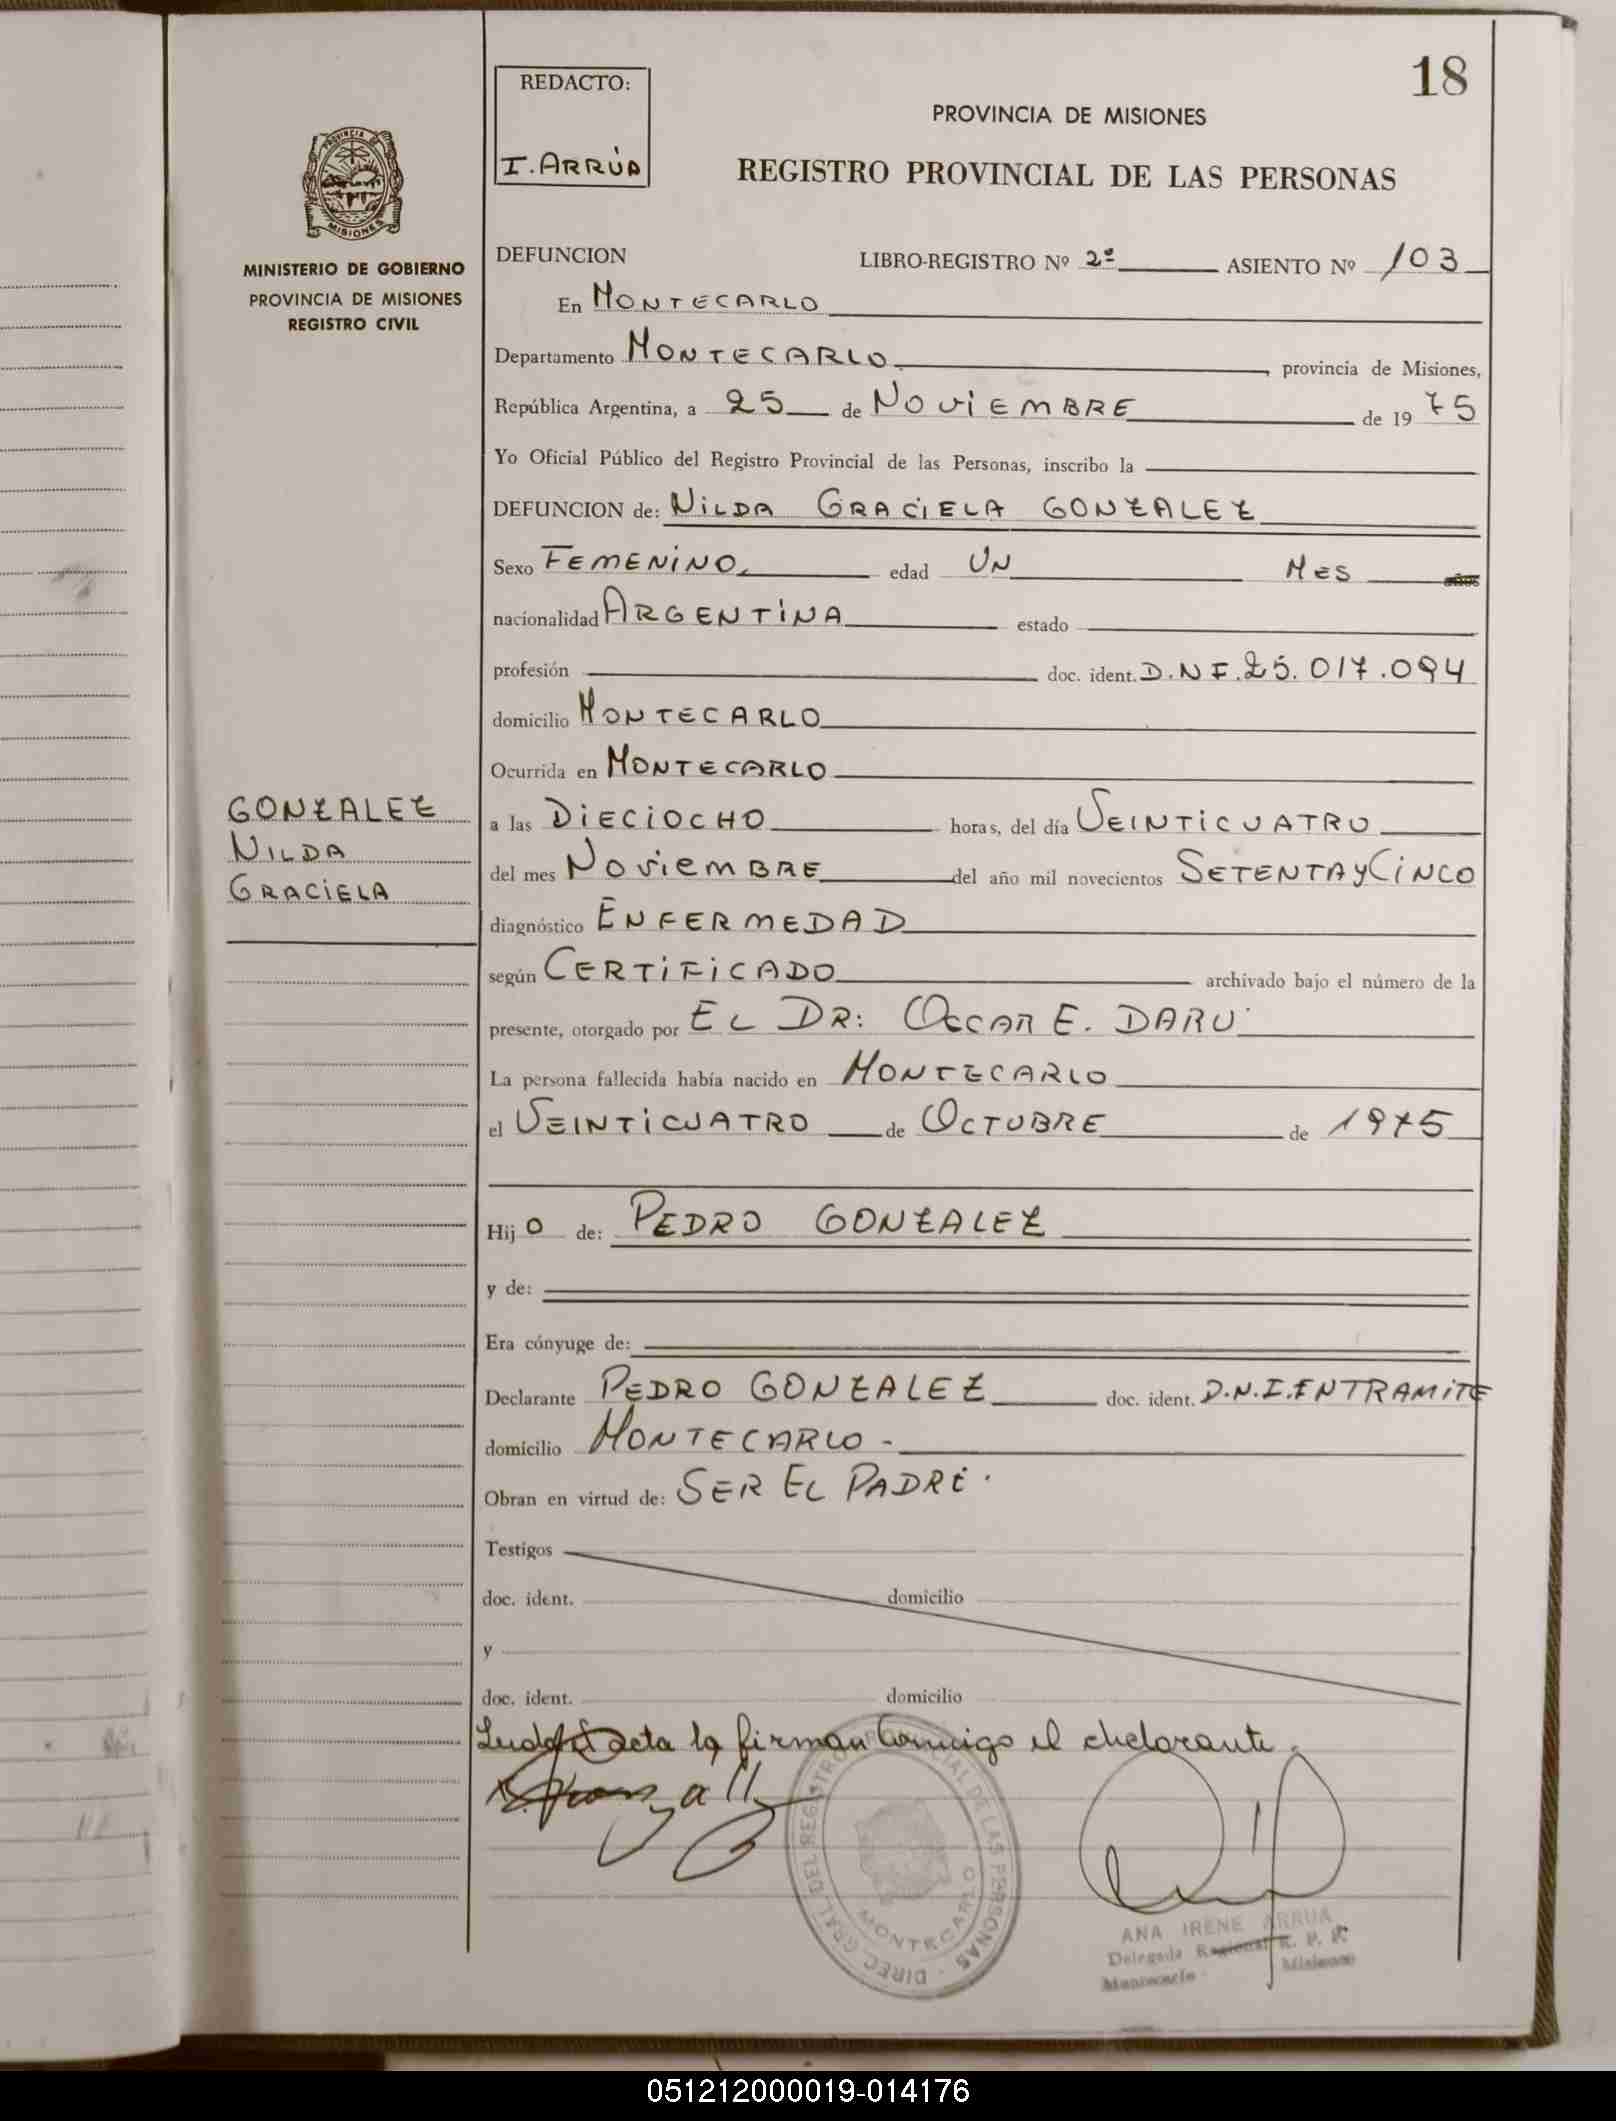 18
REDACTO:
I. ARRÚA
PROVINCIA DE MISIONES
REGISTRO PROVINCIAL DE LAS PERSONAS
PROVINCIA
MISIONES
MINISTERIO DE GOBIERNO
PROVINCIA DE MISIONES
REGISTRO CIVIL
DEFUNCION LIBRO-REGISTRO Nº 2º ASIENTO Nº 103
En MONTECARLO
Departamento MONTECARLO, provincia de Misiones,
República Argentina, a 25 de NOVIEMBRE de 1975
Yo Oficial Público del Registro Provincial de las Personas, inscribo la
DEFUNCION de: NILDA GRACIELA GONZALEZ
Sexo FEMENINO edad UN MES años
nacionalidad ARGENTINA estado
profesión doc. ident. D.N.I. 25.017.094
domicilio MONTECARLO
Ocurrida en MONTECARLO
GONZALEZ
NILDA
GRACIELA
a las DIECIOCHO horas, del día VEINTICUATRO
del mes NOVIEMBRE del año mil novecientos SETENTA Y CINCO
diagnóstico ENFERMEDAD
según CERTIFICADO archivado bajo el número de la
presente, otorgado por EL DR: OSCAR E. DARU
La persona fallecida había nacido en MONTECARLO
el VEINTICUATRO de OCTUBRE de 1975
Hijo de: PEDRO GONZALEZ
y de:
Era cónyuge de:
Declarante PEDRO GONZALEZ doc. ident. D.N.I. EN TRAMITE
domicilio MONTECARLO -
Obran en virtud de: SER EL PADRE.
Testigos
doc. ident. domicilio
y
doc. ident. domicilio
Leida el acta la firman conmigo el declarante.
DIREC. GRAL. DEL REGISTRO PROVINCIAL DE LAS PERSONAS
MONTECARLO
ANA IRENE ARRUA
Delegada Regional R. P. P.
Montecarlo - Misiones
051212000019-014176